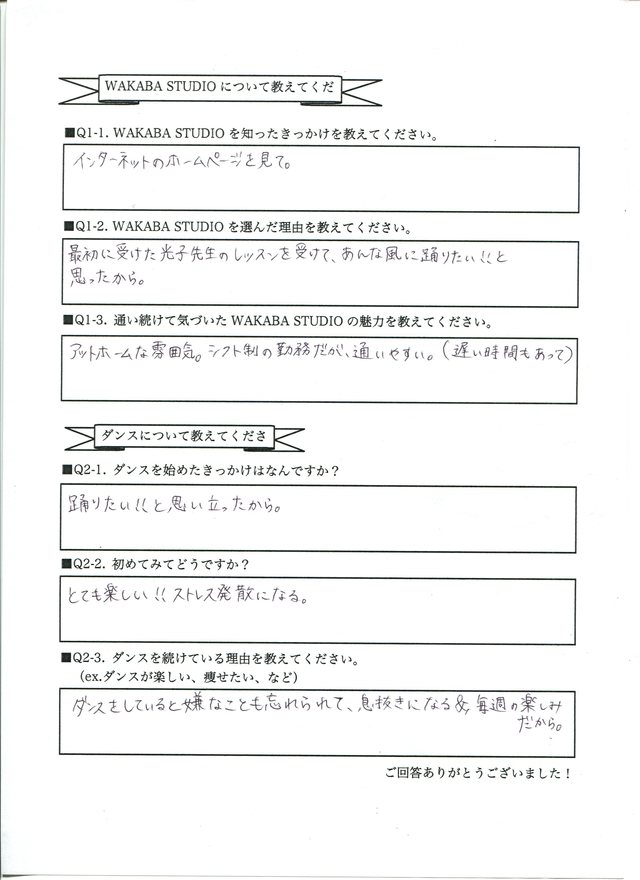 WAKABA STUDIO について教えてくだ
■Q1-1. WAKABA STUDIO を知ったきっかけを教えてください。
インターネットのホームページを見て。
■Q1-2. WAKABA STUDIO を選んだ理由を教えてください。
最初に受けた光子先生のレッスンを受けて、あんな風に踊りたい!!と
思ったから。
■Q1-3. 通い続けて気づいた WAKABA STUDIO の魅力を教えてください。
アットホームな雰囲気。シフト制の勤務だが、通いやすい。(遅い時間もあって)
ダンスについて教えてくださ
■Q2-1. ダンスを始めたきっかけはなんですか？
踊りたい!!と思い立ったから。
■Q2-2. 初めてみてどうですか？
とても楽しい!!ストレス発散になる。
■Q2-3. ダンスを続けている理由を教えてください。
（ex.ダンスが楽しい、痩せたい、など）
ダンスをしていると嫌なことも忘れられて、息抜きになる&毎週の楽しみ
だから。
ご回答ありがとうございました！